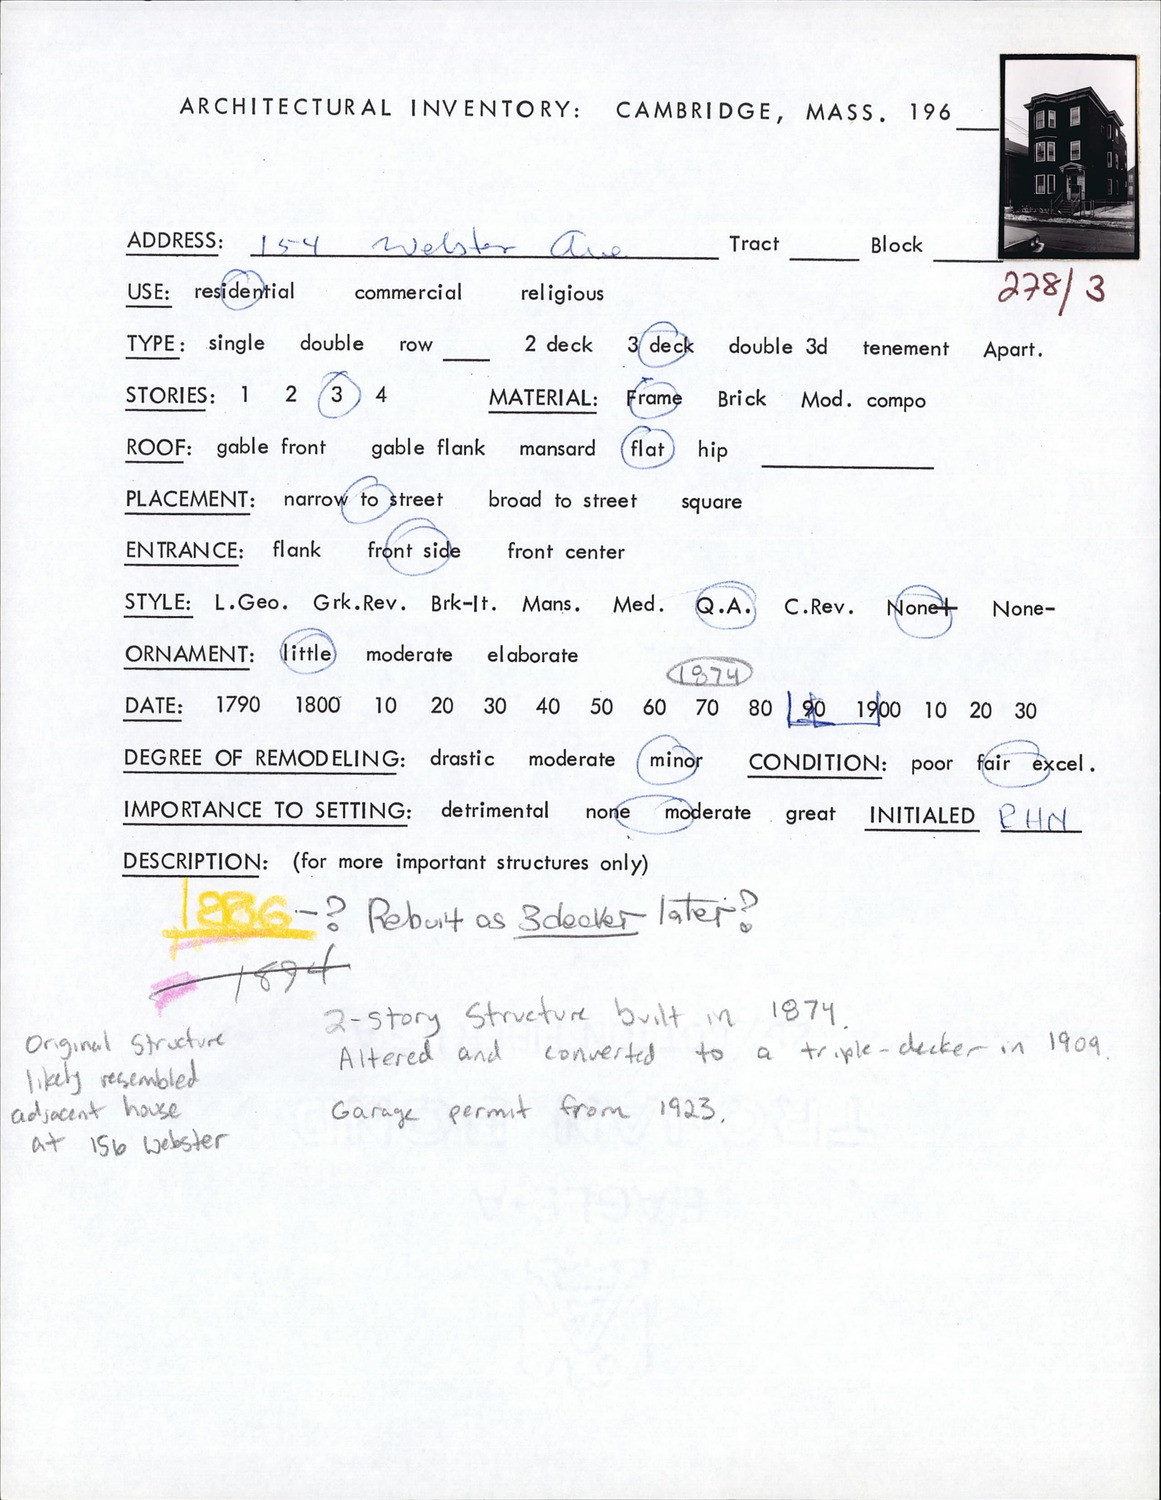 ARCHITECTURAL INVENTORY: CAMBRIDGE, MASS. 196
ADDRESS: 154 Webster Ave Tract Block
278/3
USE: residential commercial religious
TYPE: single double row 2 deck 3 deck double 3d tenement Apart.
STORIES: 1 2 3 4 MATERIAL: Frame Brick Mod. compo
ROOF: gable front gable flank mansard flat hip
PLACEMENT: narrow to street broad to street square
ENTRANCE: flank front side front center
STYLE: L.Geo. Grk.Rev. Brk-It. Mans. Med. Q.A. C.Rev. None+ None-
ORNAMENT: little moderate elaborate
1874
DATE: 1790 1800 10 20 30 40 50 60 70 80 90 1900 10 20 30
DEGREE OF REMODELING: drastic moderate minor CONDITION: poor fair excel.
IMPORTANCE TO SETTING: detrimental none moderate great INITIALED RHN
DESCRIPTION: (for more important structures only)
1886-? Rebuilt as 3decker later?
1894
2-story Structure built in 1874.
Altered and converted to a triple-decker in 1909.
Garage permit from 1923.
Original Structure
likely resembled
adjacent house
at 156 Webster